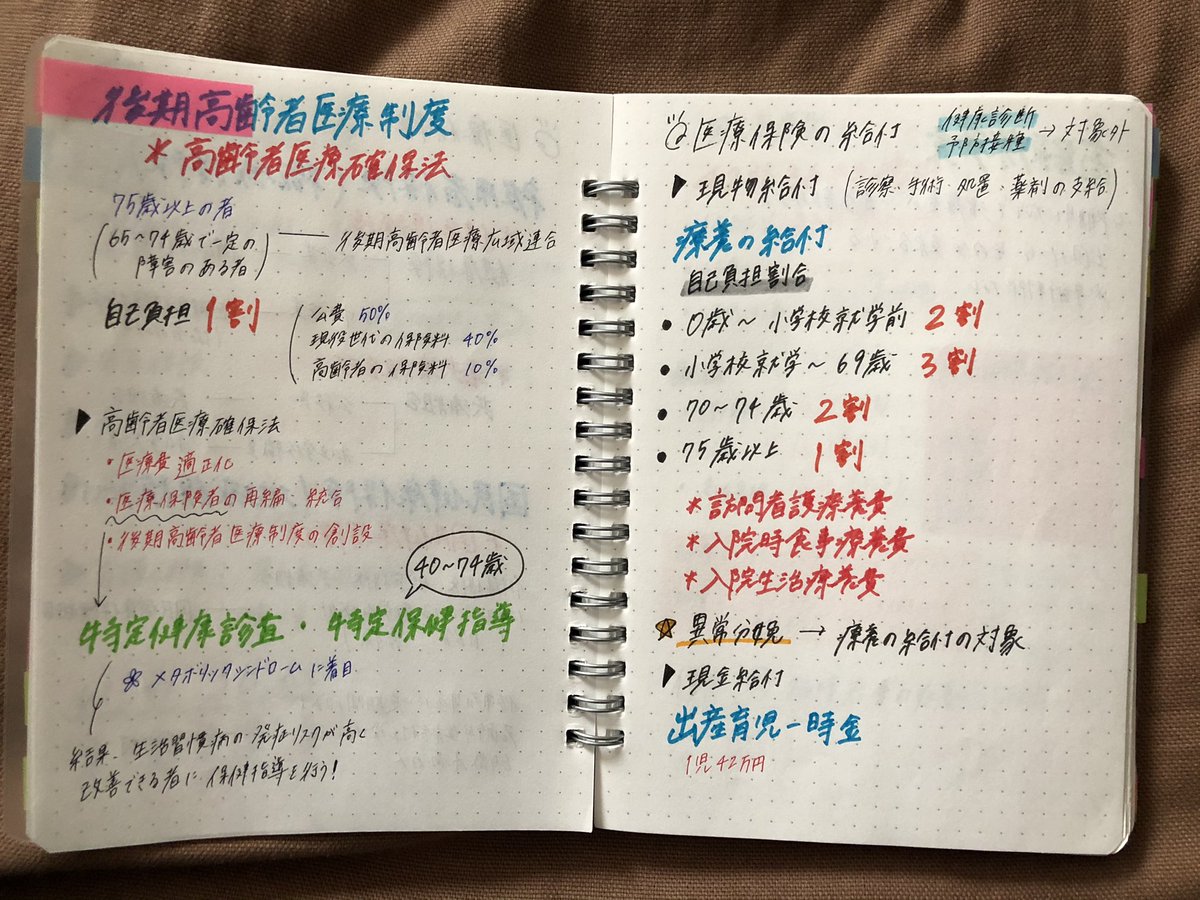 後期高齢者医療制度
* 高齢者医療確保法
75歳以上の者
(65〜74歳で一定の障害のある者) — 後期高齢者医療広域連合
自己負担 1割
公費 50%
現役世代の保険料 40%
高齢者の保険料 10%
▶ 高齢者医療確保法
・医療費適正化
・医療保険者の再編、統合
・後期高齢者医療制度の創設
40〜74歳
特定健康診査・特定保健指導
※ メタボリックシンドロームに着目
結果、生活習慣病の発症リスクが高く
改善できる者に保健指導を行う!
医療保険の給付
健康診断
予防接種 → 対象外
▶ 現物給付 (診察・手術・処置・薬剤の支給)
療養の給付
自己負担割合
• 0歳〜小学校就学前 2割
• 小学校就学〜69歳 3割
• 70〜74歳 2割
• 75歳以上 1割
* 訪問看護療養費
* 入院時食事療養費
* 入院生活療養費
☆ 異常分娩 → 療養の給付の対象
▶ 現金給付
出産育児一時金
1児42万円